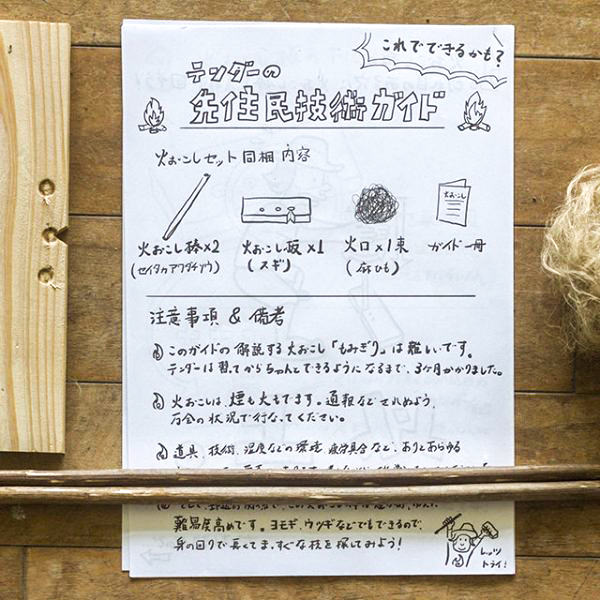 これでできるかも?
テンダーの
先住民技術ガイド
火おこしセット同梱内容
火おこし
火おこし棒×2
(セイタカアワダチソウ)
火おこし板×1
(スギ)
火口×1束
(麻ひも)
ガイド一冊
注意事項 & 備考
このガイドの解説する火おこし「もみぎり」は難しいです。
テンダーは習ってからちゃんとできるようになるまで、3ヶ月かかりました。
火おこしは、煙も火もでます。通報などされぬよう、
万全の状況で行なってください。
道具、技術、湿度などの環境、疲労具合など、ありとあらゆる
難易度高めです。ヨモギ、ウツギなどでもできるので、
身の回りで長くてまっすぐな枝を探してみよう!
レッツ
トライ!